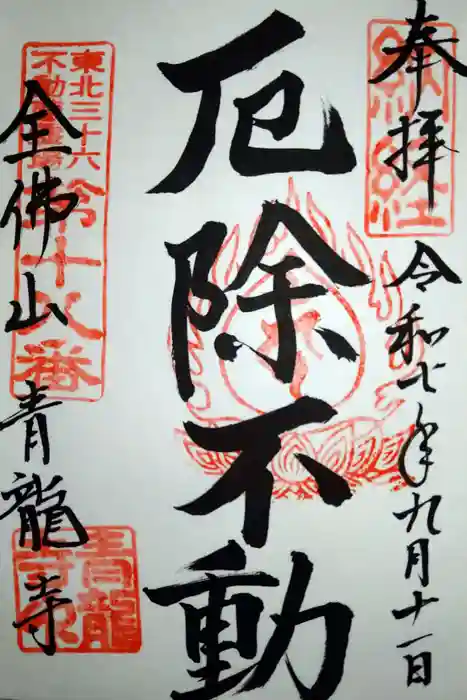 奉拝
納経
令和七年九月十一日
厄除不動
東北三十六
不動尊霊場
第十八番
全佛山 青龍寺
青龍
寺印